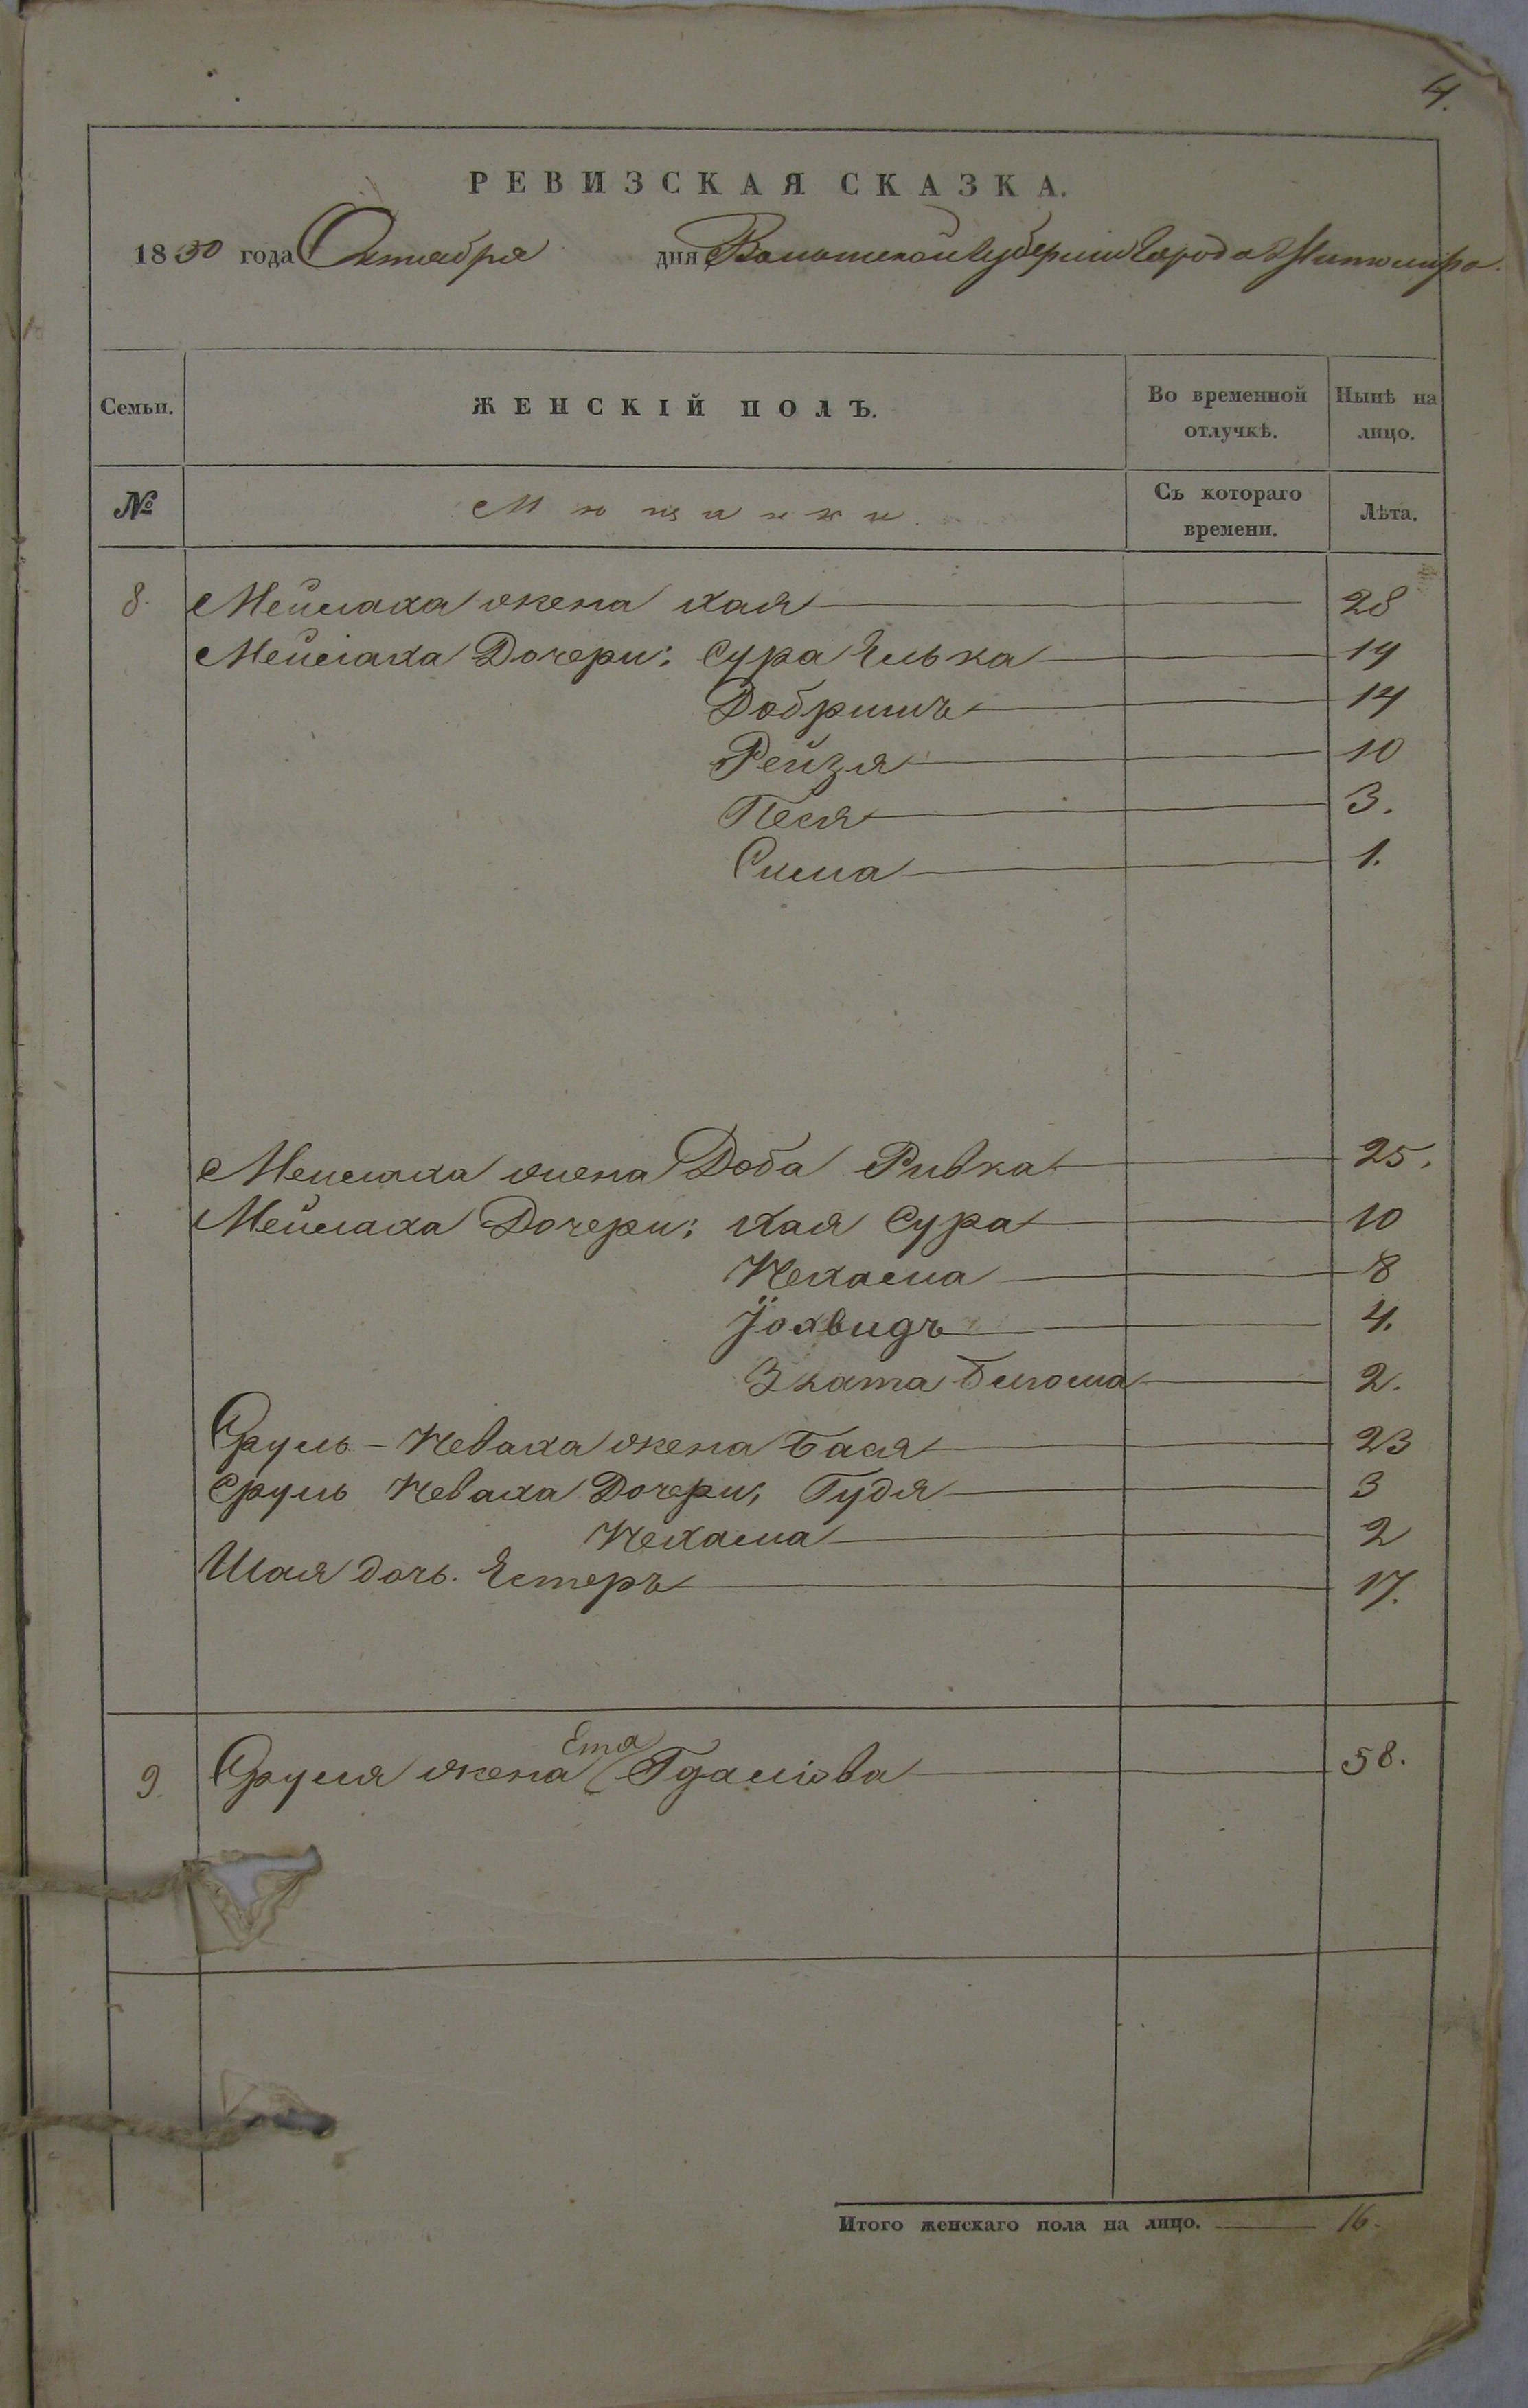 4.
РЕВИЗСКАЯ СКАЗКА.
1850 года Октября дня Волынской Губернии Города Житомира.
Семьи. ЖЕНСКІЙ ПОЛЪ. Во временной отлучкѣ. Нынѣ на лицо.
№ Мѣщанки. Съ котораго времени. Лѣта.
8. Мейлаха жена Хая 28
Мейлаха Дочери: Сура Элька 19
Добришъ 14
Рейзя 10
Песя 3.
Сима 1.
Мейлаха жена Доба Ривка 25.
Мейлаха Дочери: Хая Сура 10
Нехама 8
Іохвидъ 4.
Злата Блюма 2.
Сруль-Неваха жена Бася 23
Сруль Неваха Дочери, Гудя 3
Нехама 2
Шая дочь. Эстеръ 17.
9. Сруля жена Ета 58.
Итого женскаго пола на лицо. 16.